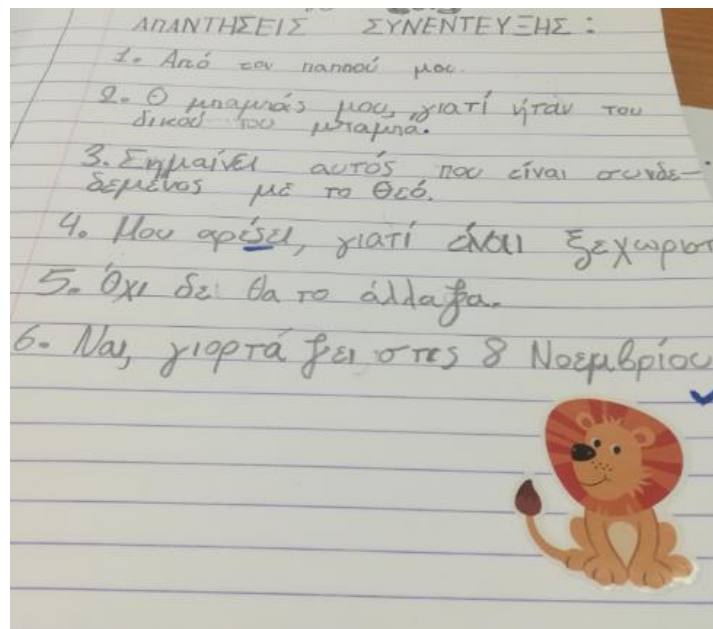 ΑΠΑΝΤΗΣΕΙΣ ΣΥΝΕΝΤΕΥΞΗΣ :
1. Από τον παππού μου.
2. Ο μπαμπάς μου, γιατί ήταν του
δικού του μπαμπά.
3. Σημαίνει αυτός που είναι συνδε-
δεμένος με το Θεό.
4. Μου αρέσει, γιατί είναι ξεχωριστ
5. Όχι δε θα το άλλαζα.
6. Ναι, γιορτάζει στις 8 Νοεμβρίου